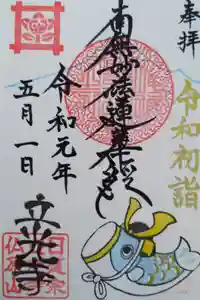 奉拝
令和初詣
南無妙法蓮華経
令和元年
五月一日
立光寺
日蓮宗